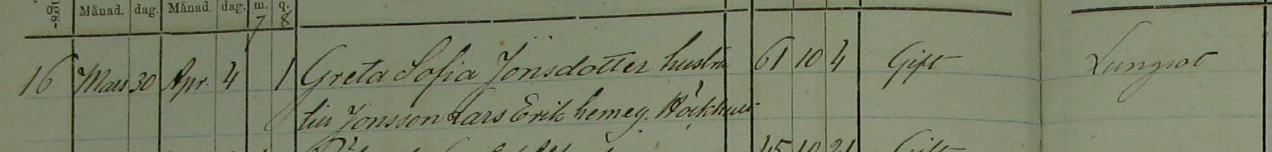 Månad. dag. Månad. dag. m. q.
7 8
16 Mars 30 Apr. 4 1 Greta Sofia Jonsdotter hustru 61 10 4 Gift Lungsot
till Jonsson Lars Erik hemeg.
45 10 21 Gift